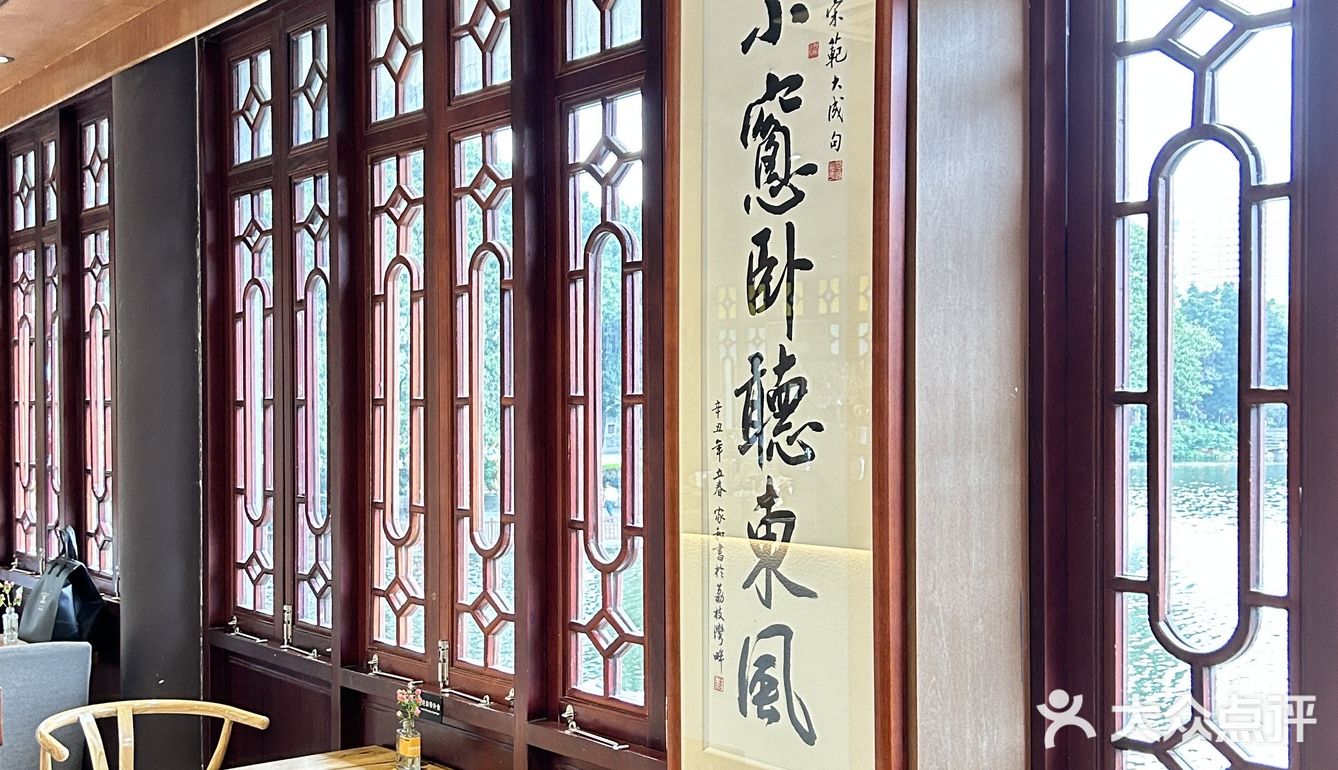 窗卧聽東風
宋範大成句
辛丑年立春家和書於荔枝灣畔
大众点评